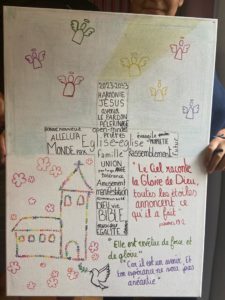 2023-2033
HARMONIE
JÉSUS
avenir
LE PARDON
PÈLERINAGE
open-minded
prières
bonne nouvelle
ALLELUIA
Eglise-église
MONDE
Famille
Rassemblement
évangile
futur
UNION
partage
Tolérance
Amusement
DIEU
vie
BIBLE
EGALITÉ
"Le Ciel raconte
la Gloire de Dieu,
toutes les étoiles
annoncent ce
qu'il a fait"
psaumes 19-2
"Elle est revêtue de force et
de gloire"
"Car il est un avenir, et ton
espérance ne sera pas
anéantie"